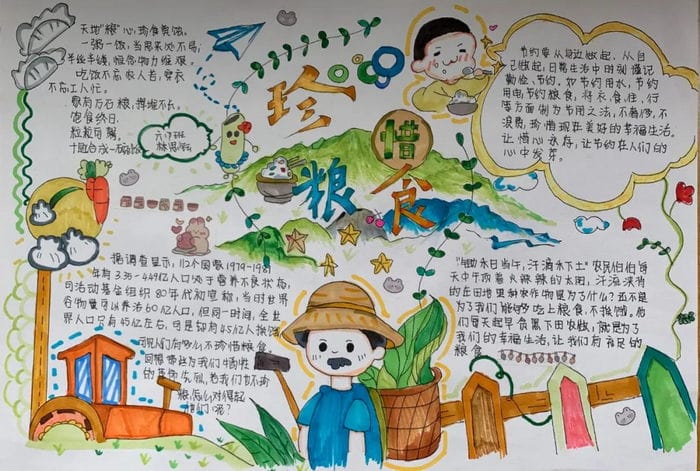 珍惜
粮食
天地"粮"心，珍食莫
一粥一饭，当思来处不易；
半丝半缕，恒念物力维艰。
吃饭不忘农人苦，穿衣
不忘工人忙。
家有万石粮，不久。
饱食终日
粒粒归
节约要从身边做起，从自
己做起，日常生活中时刻谨记
勤俭，节约，如节约用水，节约
用电节约粮食，将衣、食、住、行
等方面为节用之法，不奢侈，不
浪费，珍惜现在美好的幸福生活。
让惜心永存，让节约在人们的
心中发芽。
据调查显示，112个国家1979-1981
年有3.35-4.49亿人口处于营养不良状态，
司法动基金组织80年代初宣称，当时世界
谷物量可以养活60亿人口，但同一时间，全世
界人口只有45亿左右，可是却有4.5亿人挨饿
可见人们有多么不珍惜粮食，
回想那些为我们牺牲
的革命，若我们不珍
粮，怎么对得起
他们呢？
"锄禾日当午，汗滴禾下土"农民伯伯每
天中午顶着火辣辣的太阳，汗流浃背
的在田地里种农作物是为了什么？还不是
为了我们能够吃上粮食，不挨饿。他
们每天起早贪黑下田农做，就是为了
我们的幸福生活，让我们有富足的
粮食